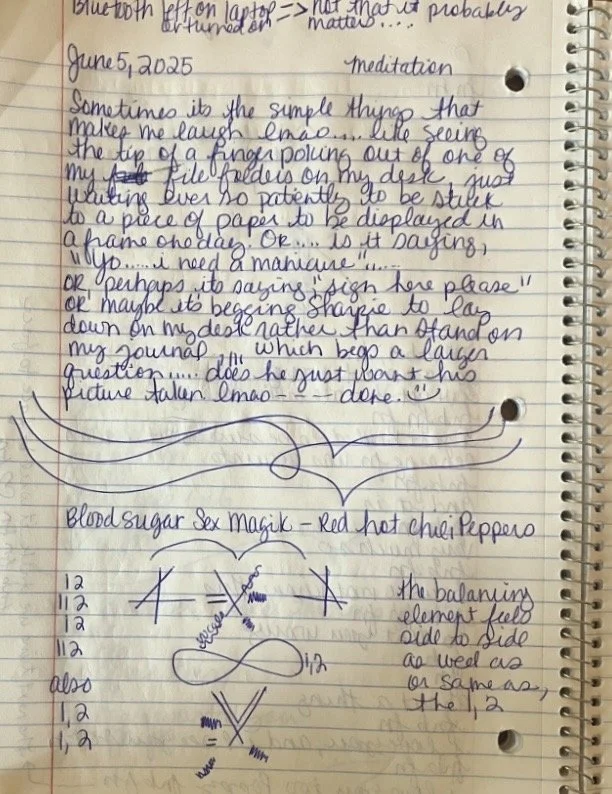 Bluetooth left on laptop => not that it probably
or turned on matters....
June 5, 2025 Meditation
Sometimes its the simple things that
makes me laugh lmao.... like seeing
the tip of a finger poking out of one of
my file folders on my desk, just
waiting ever so patiently to be stuck
to a piece of paper to be displayed in
a frame one day. Or.... is it saying,
"Yo....i need a manicure".....
or perhaps its saying "sign here please"
or maybe its begging Sharpie to lay
down on my desk rather than stand on
my journal .... which begs a larger
question..... does he just want his
picture taken lmao ---- done.
Blood sugar Sex Magik - Red hot chili Peppers
12
112
12
112
also
1, 2
1, 2
=
1,2
=
the balancing
element feels
side to side
as well as
or same as,
the 1, 2